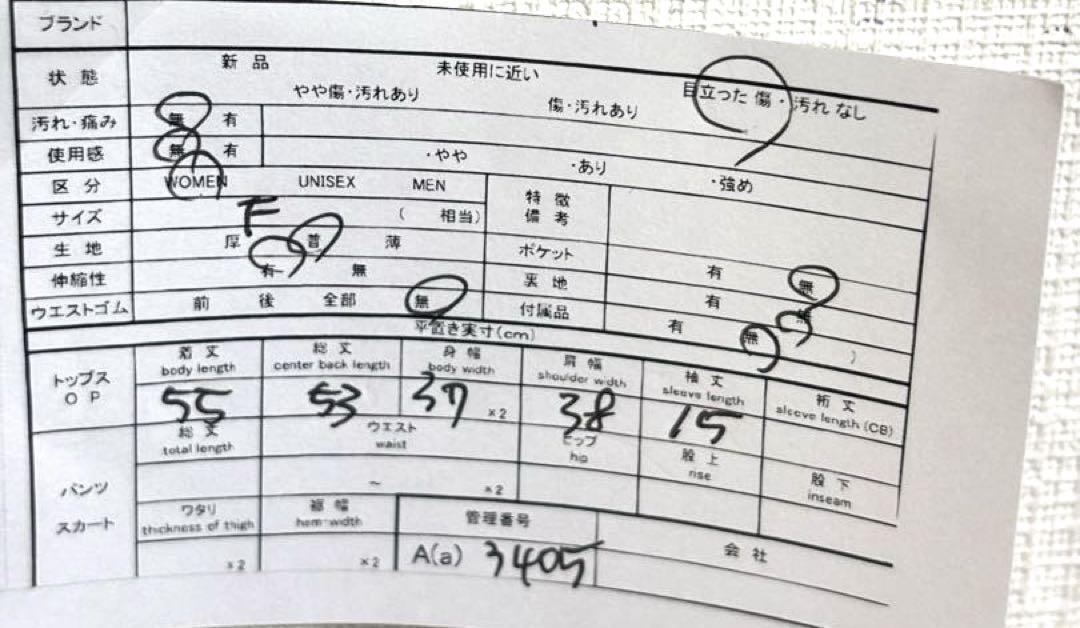 ブランド
状態 新品 未使用に近い 目立った傷・汚れなし
やや傷・汚れあり 傷・汚れあり
汚れ・痛み 無 有
使用感 無 有 ・やや ・あり ・強め
区分 WOMEN UNISEX MEN 特徴備考
サイズ F ( 相当)
生地 厚 普 薄 ポケット 有 無
伸縮性 有 無 裏地 有 無
ウエストゴム 前 後 全部 無 付属品 有 無 )
平置き実寸(cm)
トップス OP
着丈 総丈 身幅 肩幅 袖丈 裄丈
body length center back length body width shoulder width sleeve length sleeve length (CB)
55 53 37 ×2 38 15
パンツ スカート
総丈 ウエスト ヒップ 股上 股下
total length waist hip rise inseam
~ ×2
ワタリ 裾幅 管理番号 会社
thickness of thigh hem width
×2 ×2 A(a) 3405